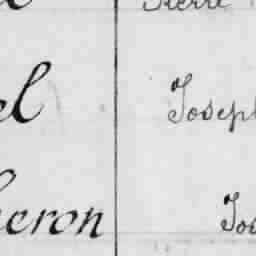 Pierre
el Joseph
eron Jos